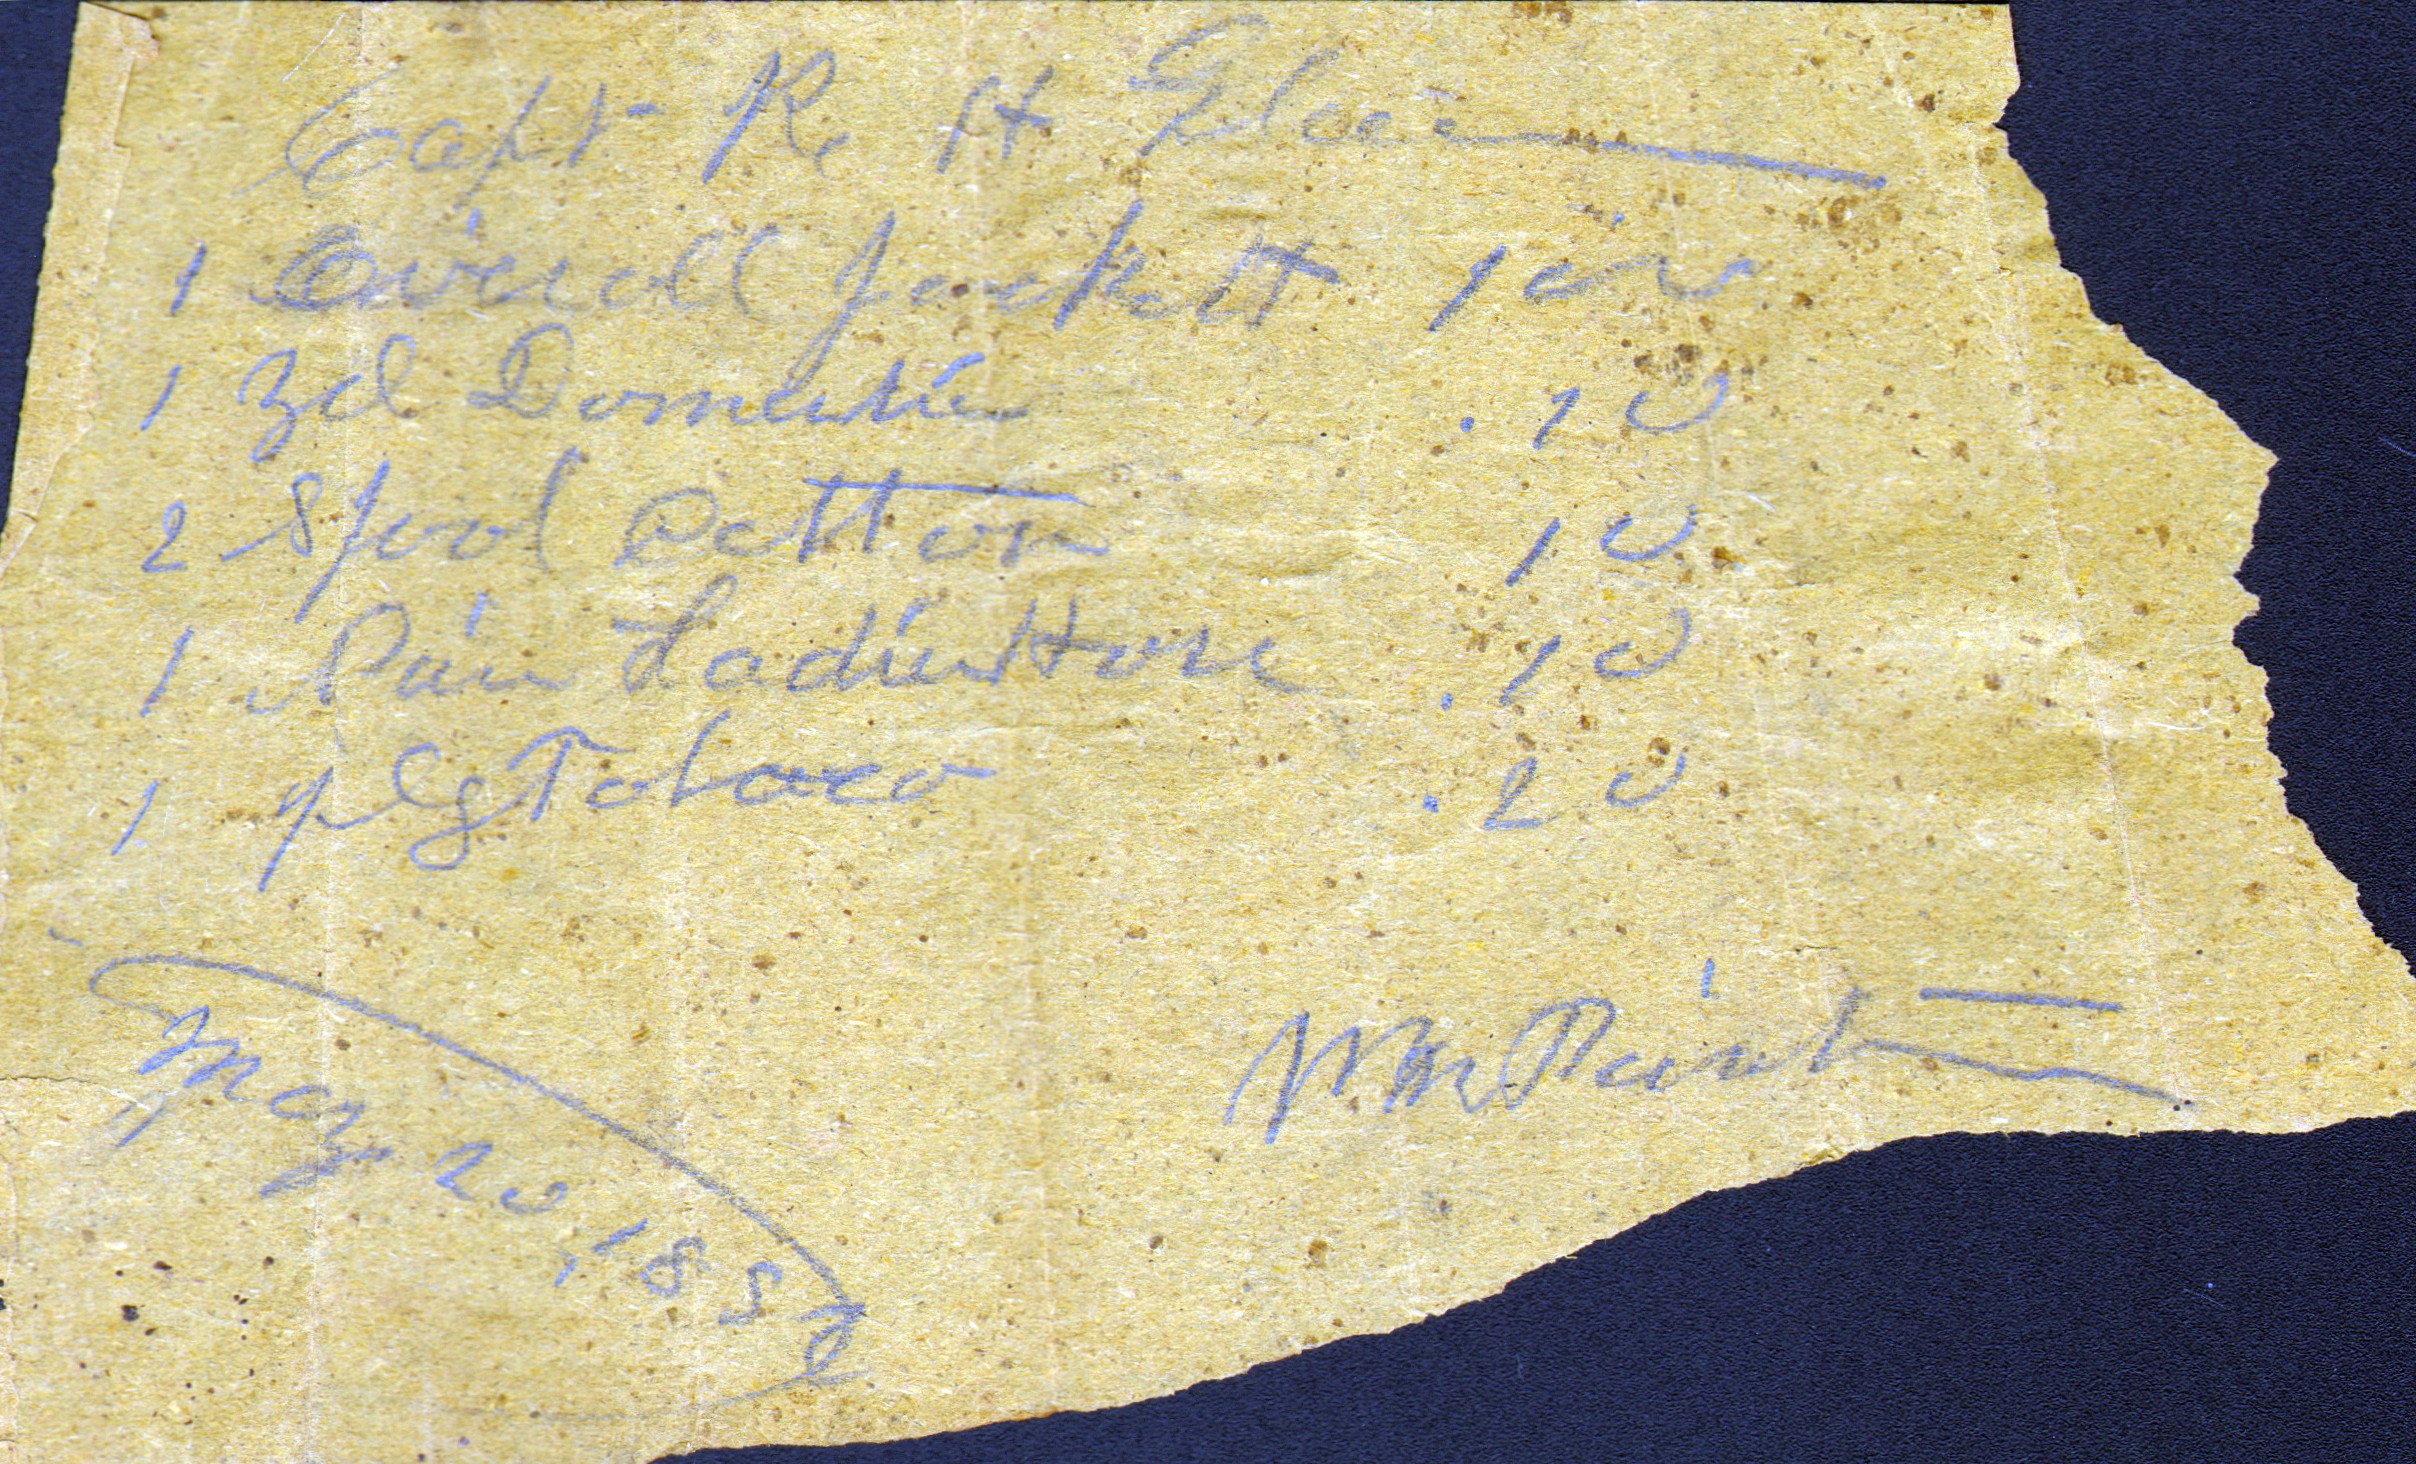 Capt R H Glee
1 Overall Jackett 1 00
1 yd Domestic .10
2 Spool Cotton 10
1 Pair Ladies Hose .10
1 plg Tobaco .20
Wm
May 20, 188